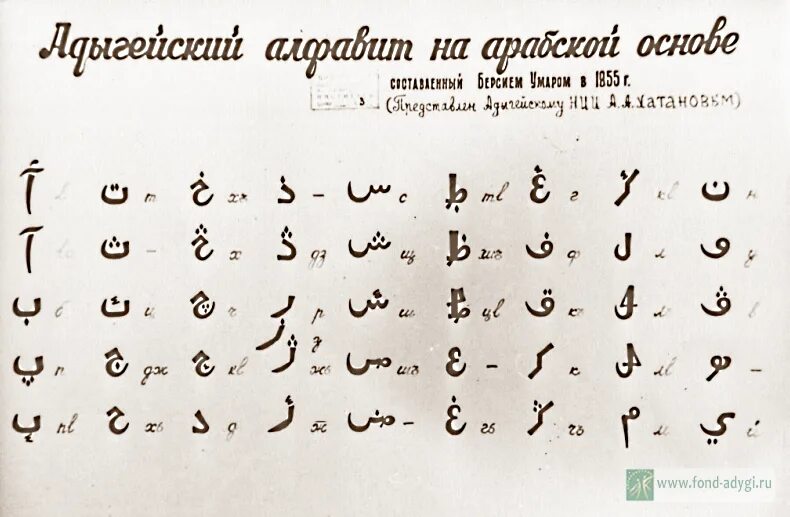 Адыгейский алфавит на арабской основе
составленный Берсием Умаром в 1855 г.
(Представлен Адигейскому НИИ А.А.Хатановым)
آ ت т خ хъ ذ – س с тӏ غ г кӏ ن н
آ ث – څ х ڎ дз ش щ ظ ف ф ل л و у
ب б ц چ ч ر р ш цӏ ق къ ڤ в
پ п дж кӏ ژ жь ص шъ ع – ک к лӏ –
пӏ ح хь د д ж ض – غ гъ чъ م м ي й
www.fond-adygi.ru